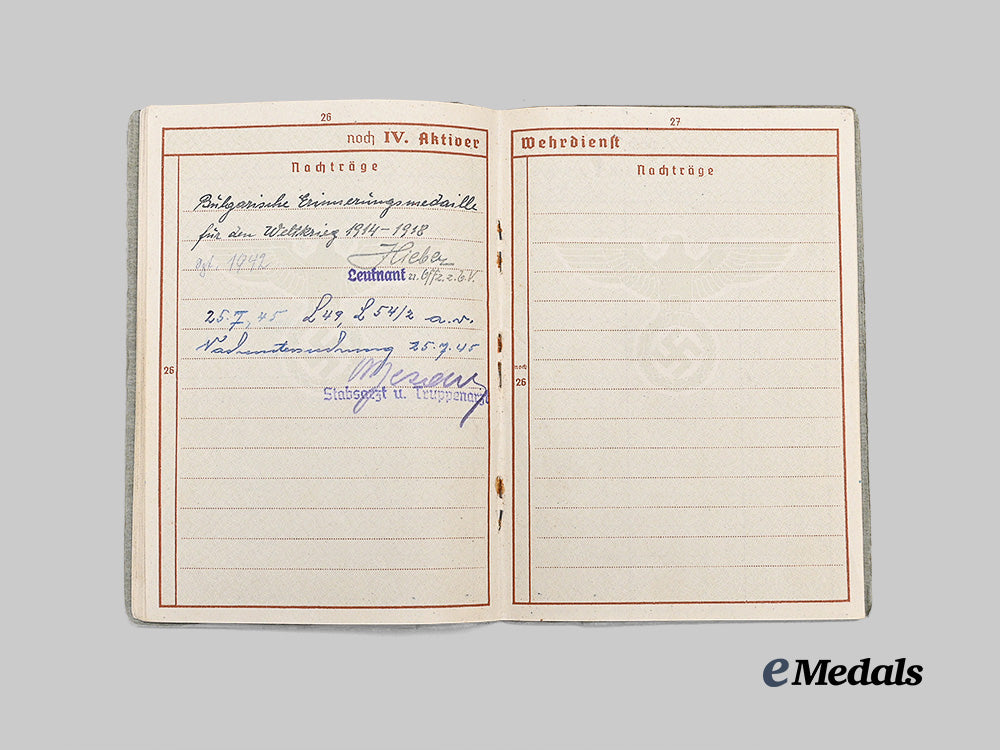 26
noch IV. Aktiver
Nachträge
Bulgarische Erinnerungsmedaille
für den Weltkrieg 1914-1918
1942
Hieber
Leutnant u. Offz. z. b. V.
25. I. 45 L 49, L 54/2 a.v.
Nachuntersuchung 25.7.45
Stabsarzt u. Truppenarzt
26
27
Wehrdienst
Nachträge
noch
26
eMedals